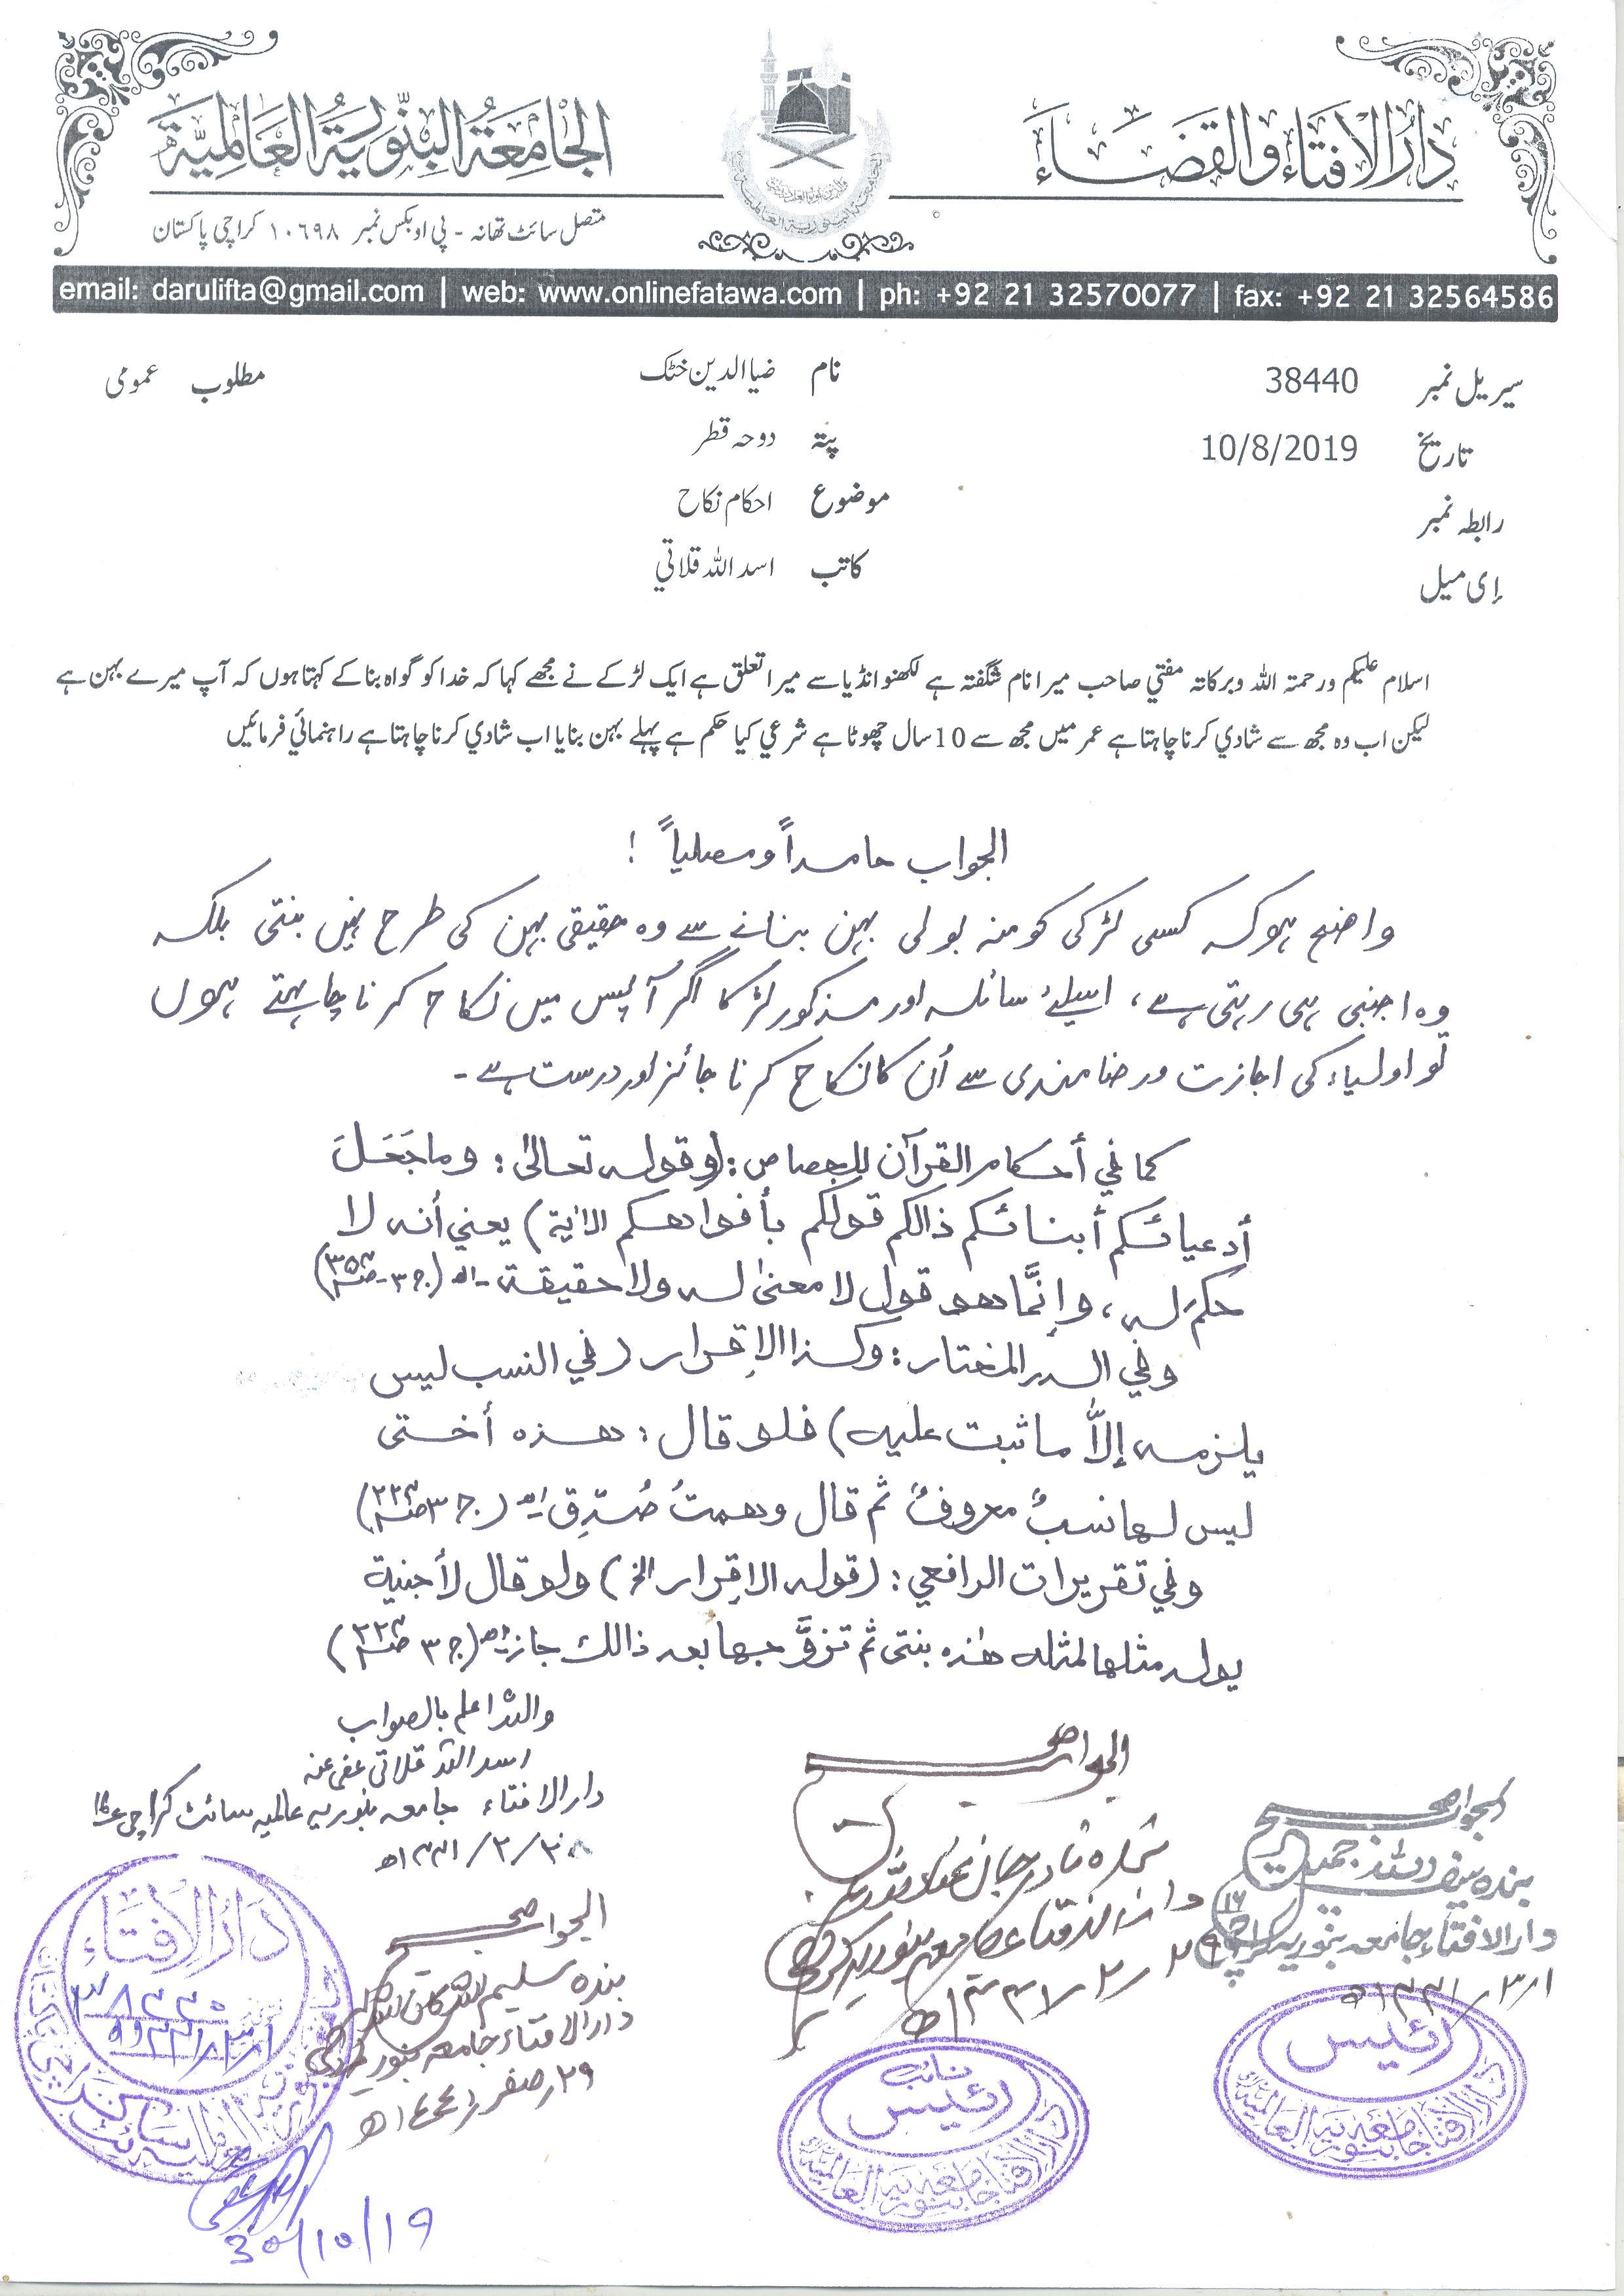 دارالافتاء والقضاء
الجامعة البنورية العالمية
متصل سائٹ تھانہ - پی او بکس نمبر ۱۰۶۹۸ کراچی پاکستان
email: darulifta@gmail.com | web: www.onlinefatawa.com | ph: +92 21 32570077 | fax: +92 21 32564586
سیریل نمبر 38440 نام ضیاالدین خٹک مطلوب عمومی
تاریخ 10/8/2019 پتہ دوحہ قطر
رابطہ نمبر موضوع احکام نکاح
اِی میل کاتب اسد اللہ قلاتي
اسلام علیکم ورحمتہ اللہ وبرکاتہ مفتي صاحب میرا نام شگفتہ ہے لکھنو انڈیا سے میرا تعلق ہے ایک لڑکے نے مجھے کہا کہ خدا کو گواہ بنا کے کہتا ہوں کہ آپ میرے بہن ہے
لیکن اب وہ مجھ سے شادي کرنا چاہتا ہے عمر میں مجھ سے 10 سال چھوٹا ہے شرعي کیا حکم ہے پہلے بہن بنایا اب شادي کرنا چاہتا ہے راہنمائي فرمائیں
الجواب حامداً ومصلیاً !
واضح ہو کہ کسی لڑکی کو منہ بولی بہن بنانے سے وہ حقیقی بہن کی طرح نہیں بنتی بلکہ
وہ اجنبی ہی رہتی ہے، اسلئے سائلہ اور مذکور لڑکا اگر آپس میں نکاح کرنا چاہتے ہوں
تو اولیاء کی اجازت ورضامندی سے اُن کا نکاح کرنا جائز اور درست ہے۔
كما في أحكام القرآن للجصاص: (وقوله تعالیٰ: وما جَعَلَ
أدعيائكم أبنائكم ذالكم قولكم بأفواهكم الاٰية) يعني أنه لا
حكم له، وإنَّما هو قول لا معنىٰ له ولا حقيقة - اھ (ج ۳ - صـ ۳۵۴)
وفي الدر المختار: وكذا الإقرار (في النسب ليس
يلزمه إلاَّ ما ثبت عليه) فلو قال: هذه أختى
ليس لها نسبٌ معروفٌ ثم قال وهمتُ صُدِّق اھ (ج ۳ صـ ۲۲۳)
وفي تقريرات الرافعي: (قوله الإقرار الخ) ولو قال لأجنبية
يولد مثلها لمثله هٰذه بنتى ثم تزوَّجها بعد ذالك جاز اھ (ج ۳ صـ ۲۲۳)
واللہ اعلم بالصواب
اسد اللہ قلاتی عفی عنہ
دارالافتاء جامعہ بنوریہ عالمیہ سائٹ کراچی
الجواب صحیح
بندہ نادر جان
دارالافتاء جامعہ بنوریہ کراچی
نائب رئیس
دارالافتاء جامعہ بنوریہ العالمیہ
الجواب صحیح
بندہ سیف اللہ جمیل
دارالافتاء جامعہ بنوریہ کراچی
رئیس
دارالافتاء جامعہ بنوریہ العالمیہ
الجواب صحیح
بندہ سلیم اللہ
دارالافتاء جامعہ بنوریہ کراچی
۲۹ صفر ۱۴۴۱ھ
دارالافتاء
30/10/19